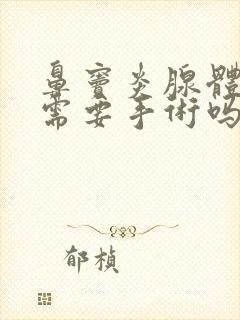 鼻竇炎腺體
需要手術嗎
郁楨